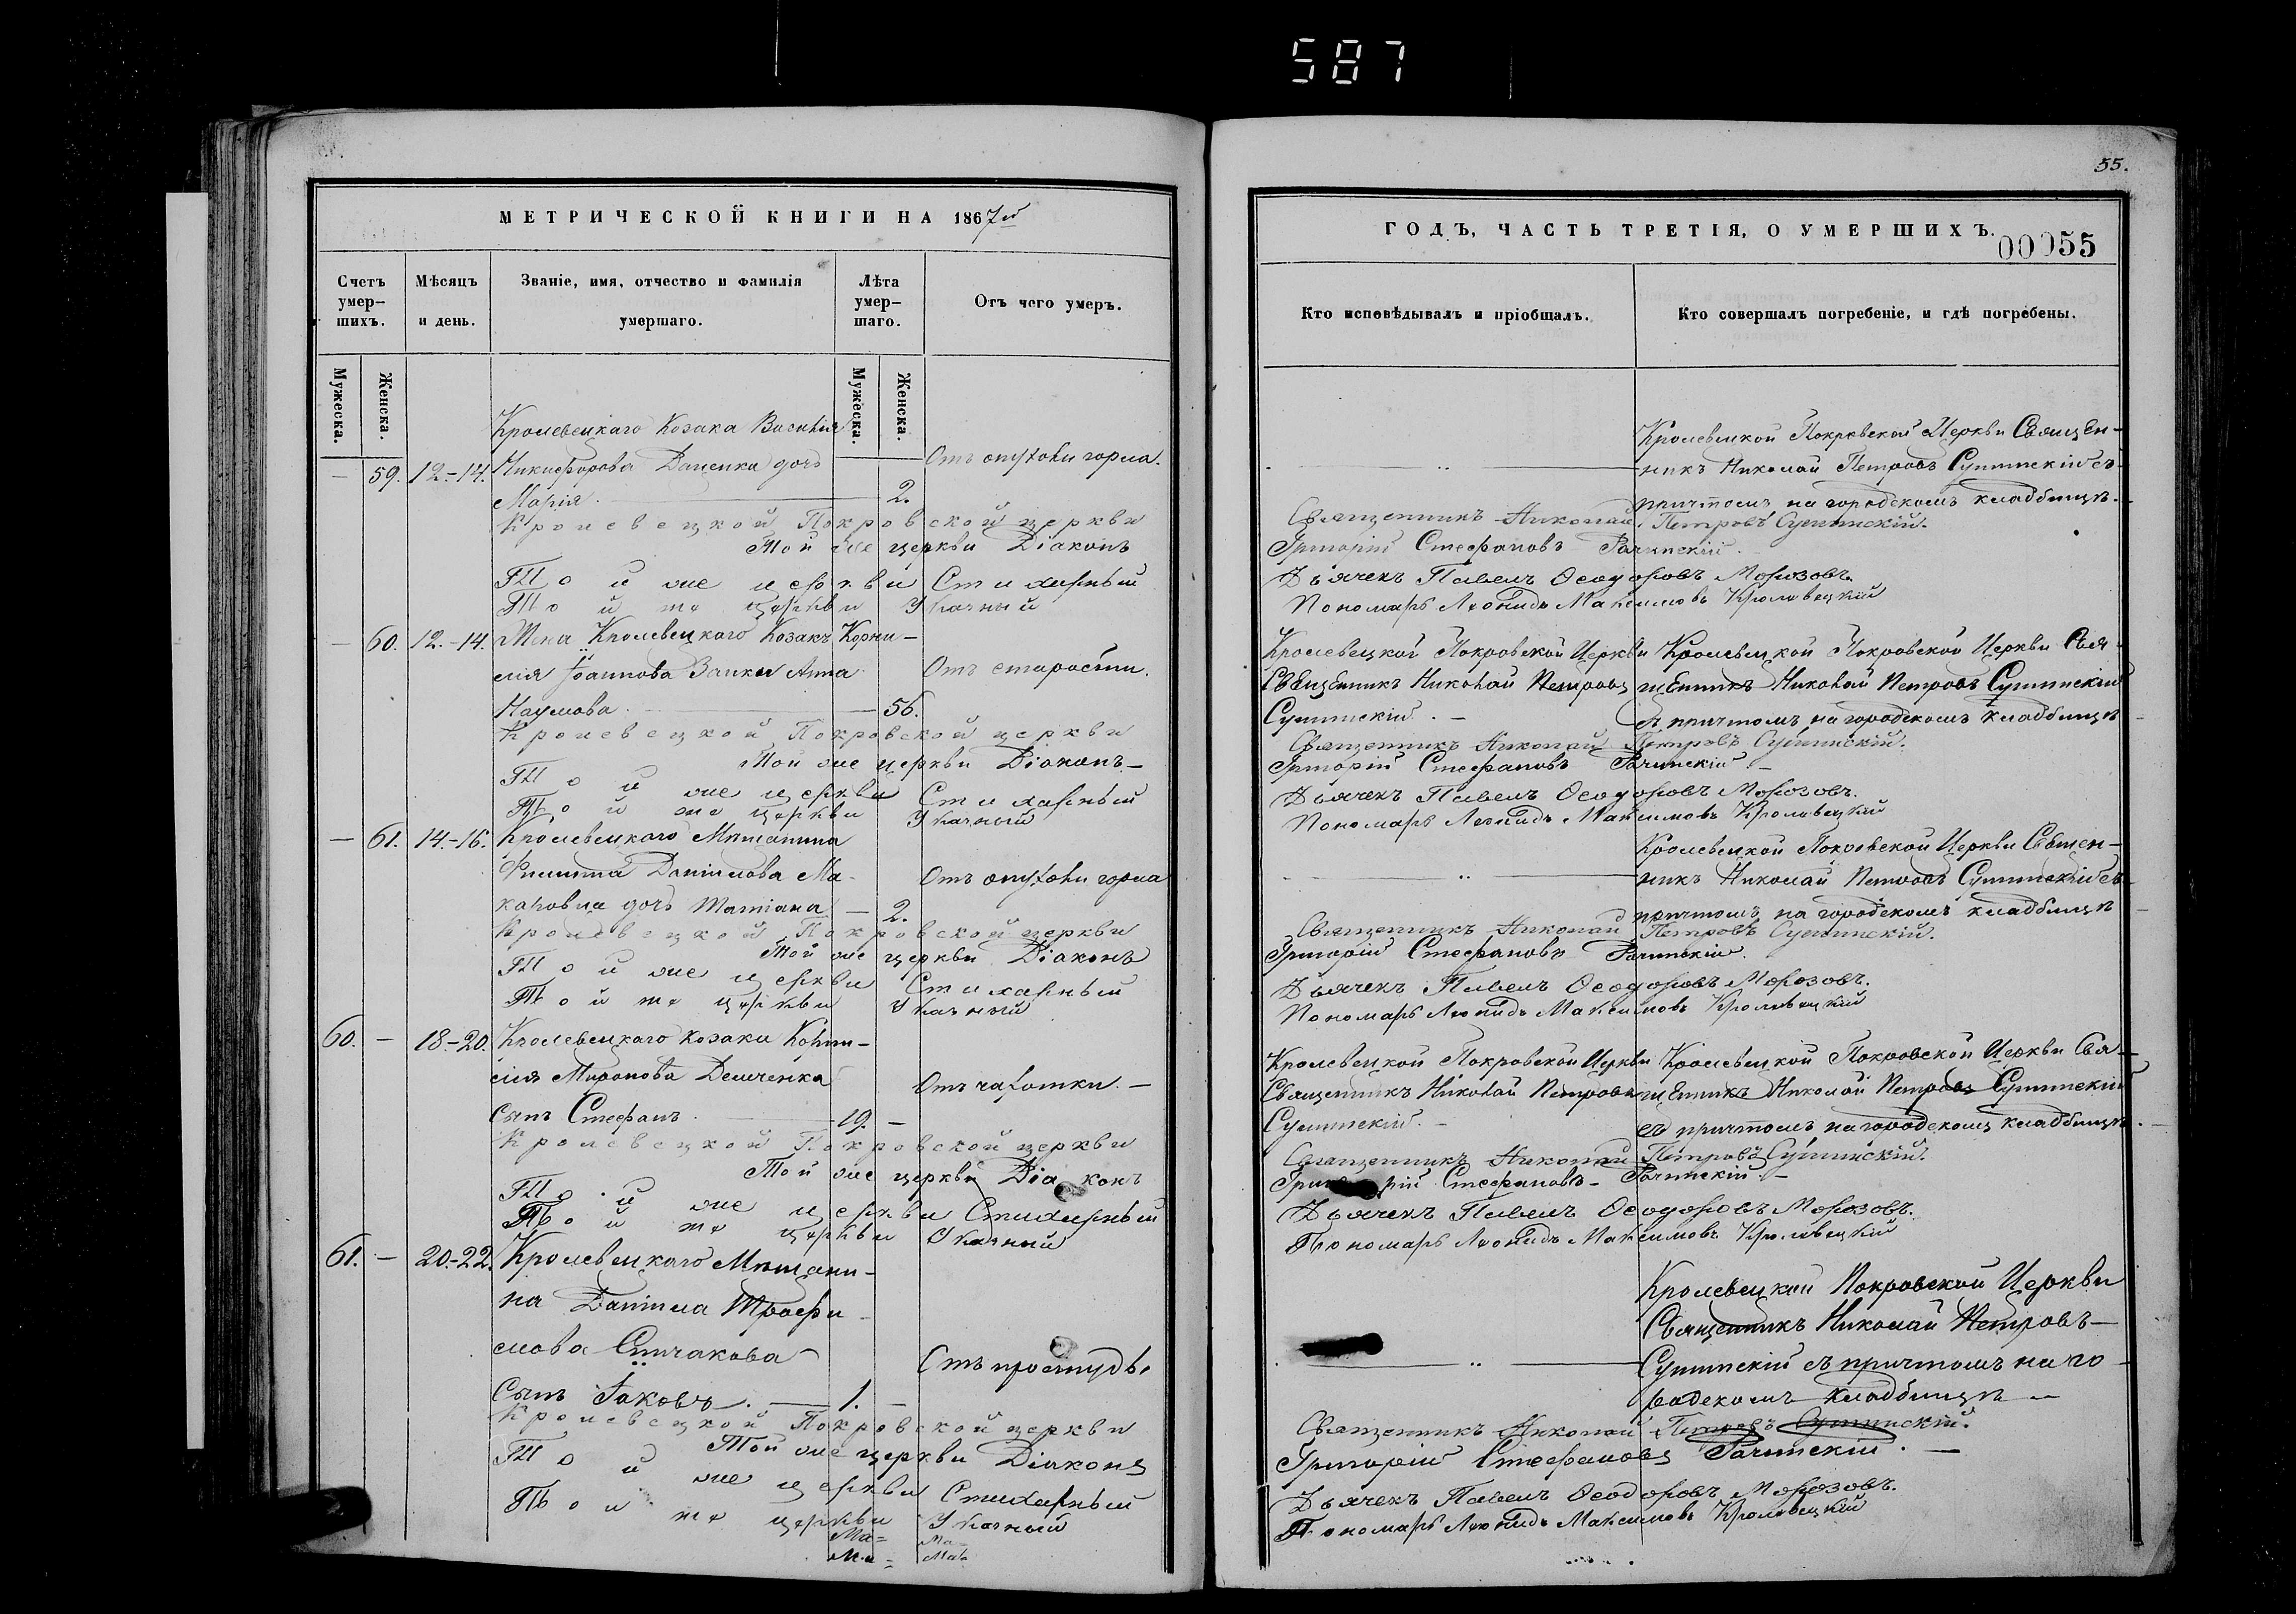 587
55.
МЕТРИЧЕСКОЙ КНИГИ НА 1867й
ГОДЪ, ЧАСТЬ ТРЕТІЯ, О УМЕРШИХЪ.
00055
Счетъ умер-шихъ.
Мѣсяцъ и день.
Званіе, имя, отчество и фамилія умершаго.
Лѣта умер-шаго.
Отъ чего умеръ.
Кто исповѣдывалъ и пріобщалъ.
Кто совершалъ погребеніе, и гдѣ погребены.
Мужеска.
Женска.
Мужеска.
Женска.
Кролевецкаго Козака Василія
— 59. 12.-14. Никифорова Даценки дочь
Марія. — 2.
Отъ опухоли горла.
Кролевецкой Покровской Церкви Священ-
никъ Николай Петровъ Сушинскій съ
причтомъ на городскомъ кладбищѣ.
Кролевецкой Покровской церкви Священникъ Николай Петровъ Сушинскій.
Той же церкви Діаконъ Григорій Стефановъ Рачинскій.
Той же церкви Стихарный Дьячекъ Павелъ Ѳеодоровъ Морозовъ.
Той же церкви Указный Пономарь Леонидъ Максимовъ Кролевецкій
— 60. 12.-14. Жена Кролевецкаго Козака Корни-
лія Іоаннова Заики Анна
Наумова. — 56.
Отъ старости.
Кролевецкой Покровской Церкви
Священникъ Николай Петровъ
Сушинскій. —
Кролевецкой Покровской Церкви Свя-
щенникъ Николай Петровъ Сушинскій
съ причтомъ на городскомъ кладбищѣ
Кролевецкой Покровской церкви Священникъ Николай Петровъ Сушинскій.
Той же церкви Діаконъ — Григорій Стефановъ Рачинскій —
Той же церкви Стихарный Дьячекъ Павелъ Ѳеодоровъ Морозовъ.
Той же церкви Указный Пономарь Леонидъ Максимовъ Кролевецкій
— 61. 14.-16. Кролевецкаго Мѣщанина
Филиппа Даниилова Ма-
дочь Татіана — 2.
Отъ опухоли горла
Кролевецкой Покровской Церкви Священ-
никъ Николай Петровъ Сушинскій съ
причтомъ на городскомъ кладбищѣ
Кролевецкой Покровской церкви Священникъ Николай Петровъ Сушинскій.
Той же церкви Діаконъ Григорій Стефановъ Рачинскій.
Той же церкви Стихарный Дьячекъ Павелъ Ѳеодоровъ Морозовъ.
Той же церкви Указный Пономарь Леонидъ Максимовъ Кролевецкій
60. — 18.-20. Кролевецкаго Козака Корни-
лія Миронова Демченка
Сынъ Стефанъ. — 19. —
Отъ чахотки. —
Кролевецкой Покровской Церкви
Священникъ Николай Петровъ
Сушинскій. —
Кролевецкой Покровской Церкви Свя-
щенникъ Николай Петровъ Сушинскій
съ причтомъ на городскомъ кладбищѣ.
Кролевецкой Покровской церкви Священникъ Николай Петровъ Сушинскій.
Той же церкви Діаконъ Григорій Стефановъ — Рачинскій —
Той же церкви Стихарный Дьячекъ Павелъ Ѳеодоровъ Морозовъ.
Той же церкви Указный Пономарь Леонидъ Максимовъ Кролевецкій
61. — 20.-22. Кролевецкаго Мѣщани-
на Даниила Трофи-
мова
Сынъ Іаковъ. — 1. —
Отъ простуды.
Кролевецкой Покровской Церкви
Священникъ Николай Петровъ —
Сушинскій съ причтомъ на го-
родскомъ кладбищѣ —
Кролевецкой Покровской церкви Священникъ Николай Петровъ Сушинскій.
Той же церкви Діаконъ Григорій Стефановъ Рачинскій. —
Той же церкви Стихарный Дьячекъ Павелъ Ѳеодоровъ Морозовъ.
Той же церкви Указный Пономарь Леонидъ Максимовъ Кролевецкій